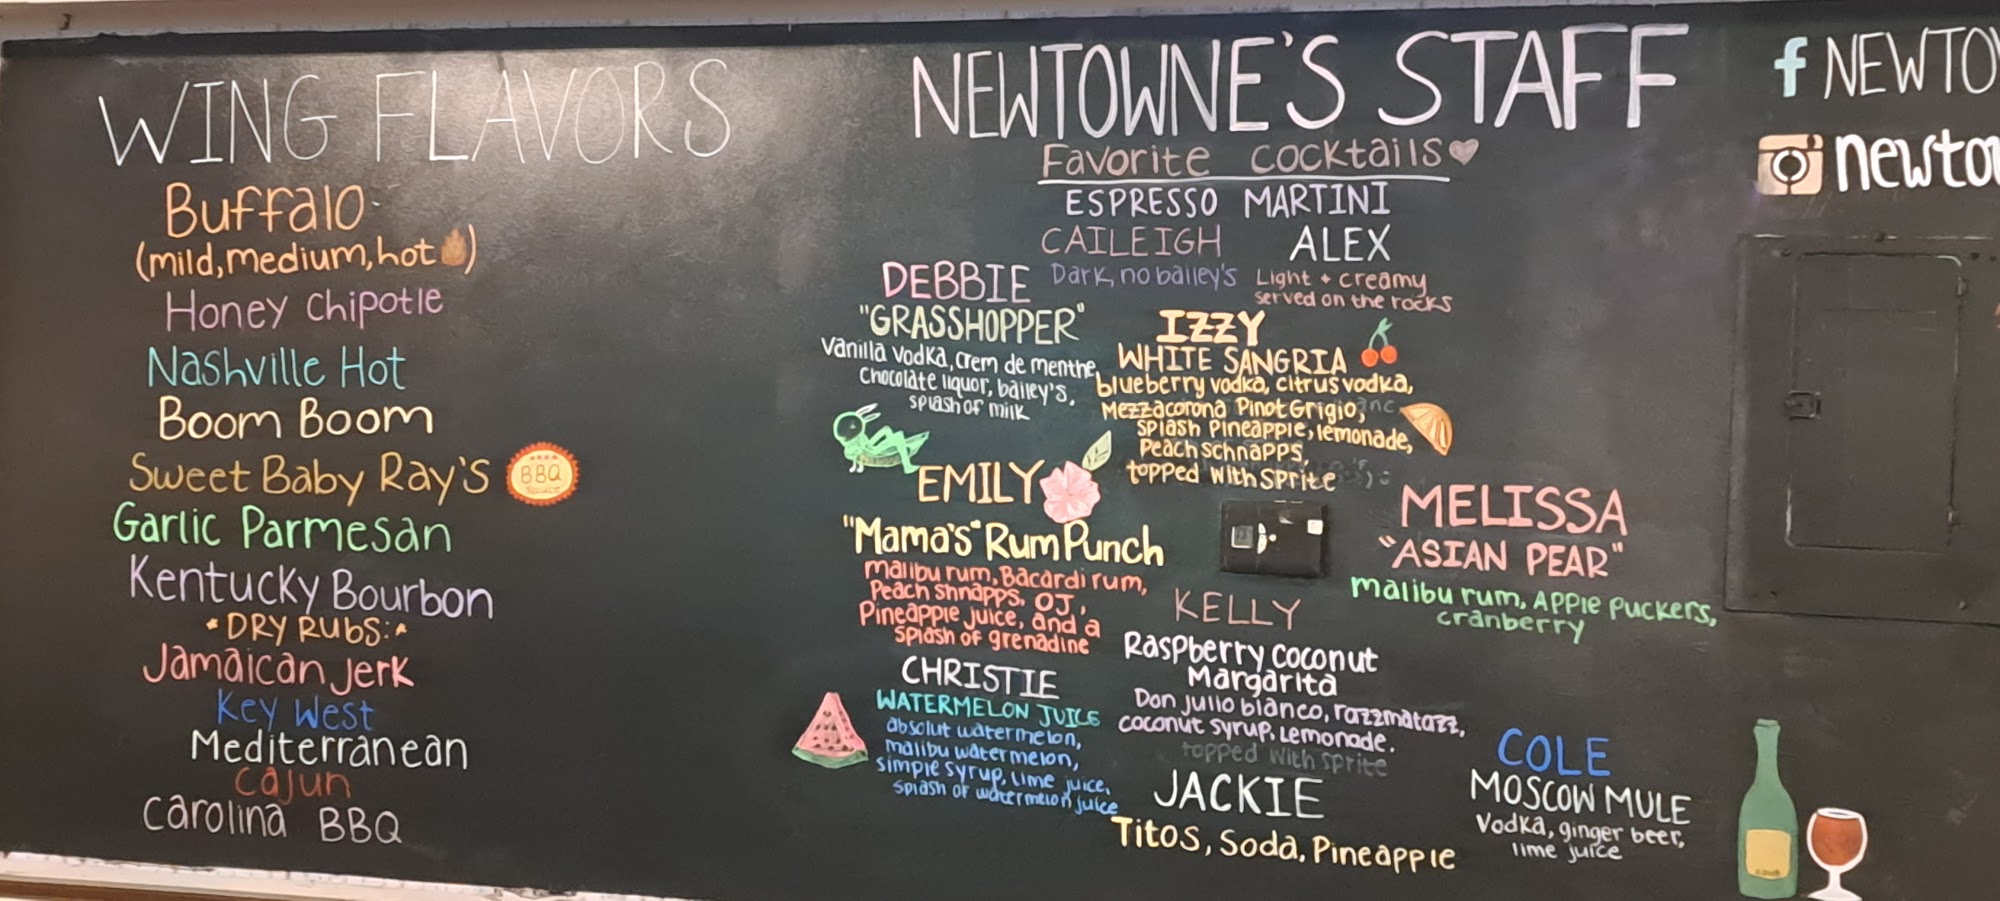 WING FLAVORS
Buffalo
(mild, medium, hot)
Honey Chipotle
Nashville Hot
Boom Boom
Sweet Baby Ray's
BBQ
Sauce
Garlic Parmesan
Kentucky Bourbon
DRY RUBS:
Jamaican Jerk
Key West
Mediterranean
Cajun
Carolina BBQ
NEWTOWNE'S STAFF
Favorite Cocktails
ESPRESSO MARTINI
CAILEIGH
Dark, no bailey's
ALEX
Light + creamy
served on the rocks
DEBBIE
"GRASSHOPPER"
Vanilla vodka, crem de menthe,
Chocolate liquor, bailey's,
splash of milk
IZZY
WHITE SANGRIA
blueberry vodka, citrus vodka,
Mezzacorona Pinot Grigio,
splash Pineapple, lemonade,
Peach schnapps,
topped with sprite
EMILY
"Mama's" Rum Punch
malibu rum, Bacardi rum,
Peach shnapps, OJ,
Pineapple juice, and a
splash of grenadine
MELISSA
"ASIAN PEAR"
malibu rum, Apple Puckers,
cranberry
KELLY
Raspberry coconut
Margarita
Don julio blanco, razzmatazz,
coconut syrup, Lemonade.
topped with sprite
CHRISTIE
WATERMELON JUICE
absolut watermelon,
malibu watermelon,
simple syrup, lime juice,
splash of watermelon juice
JACKIE
Titos, Soda, Pineapple
COLE
MOSCOW MULE
Vodka, ginger beer,
lime juice
f NEWTO
newto